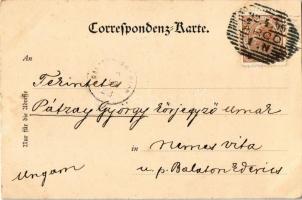 Correspondenz-Karte.
An
Tekintetes
Pátzay György körjegyző urnak
in Nemes vita
Ungarn
u. p. Balaton Ederics
Nur für die Adresse